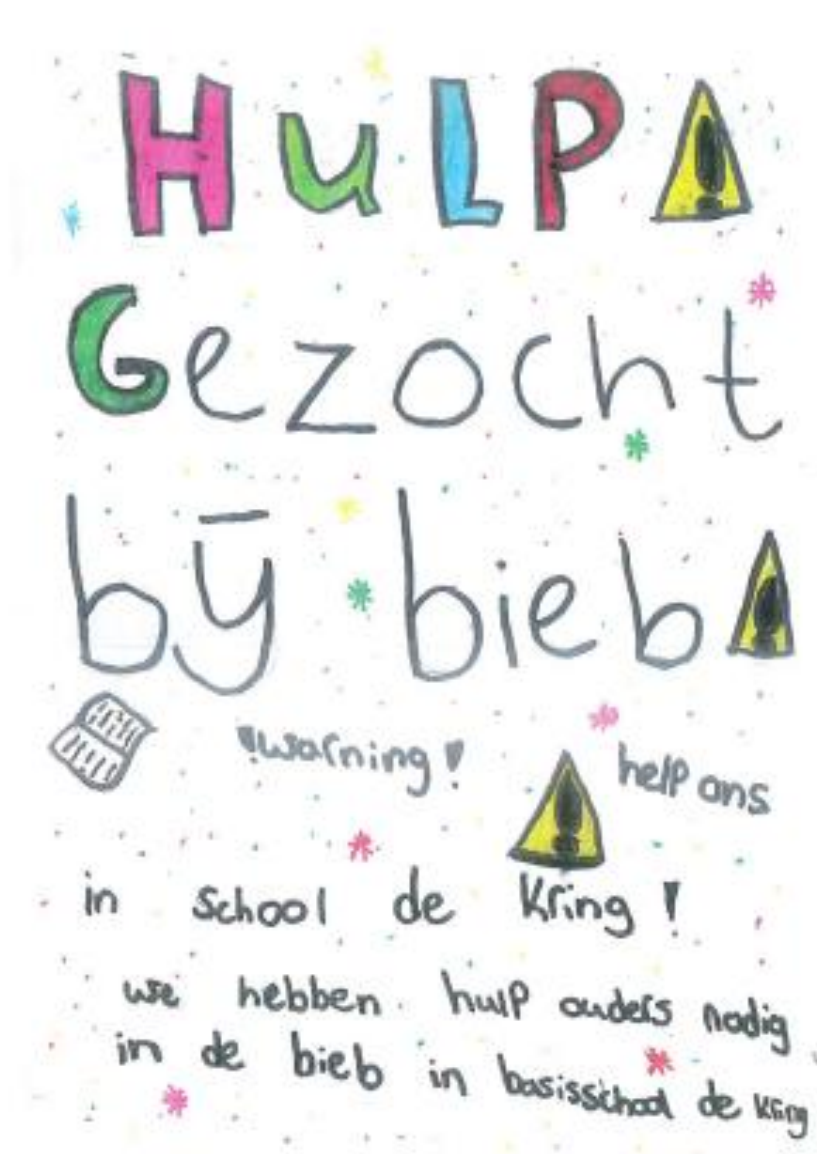 HuLP
Gezocht
bij bieb
!warning!
help ons
in school de Kring!
we hebben hulp ouders nodig
in de bieb in basisschool de kring